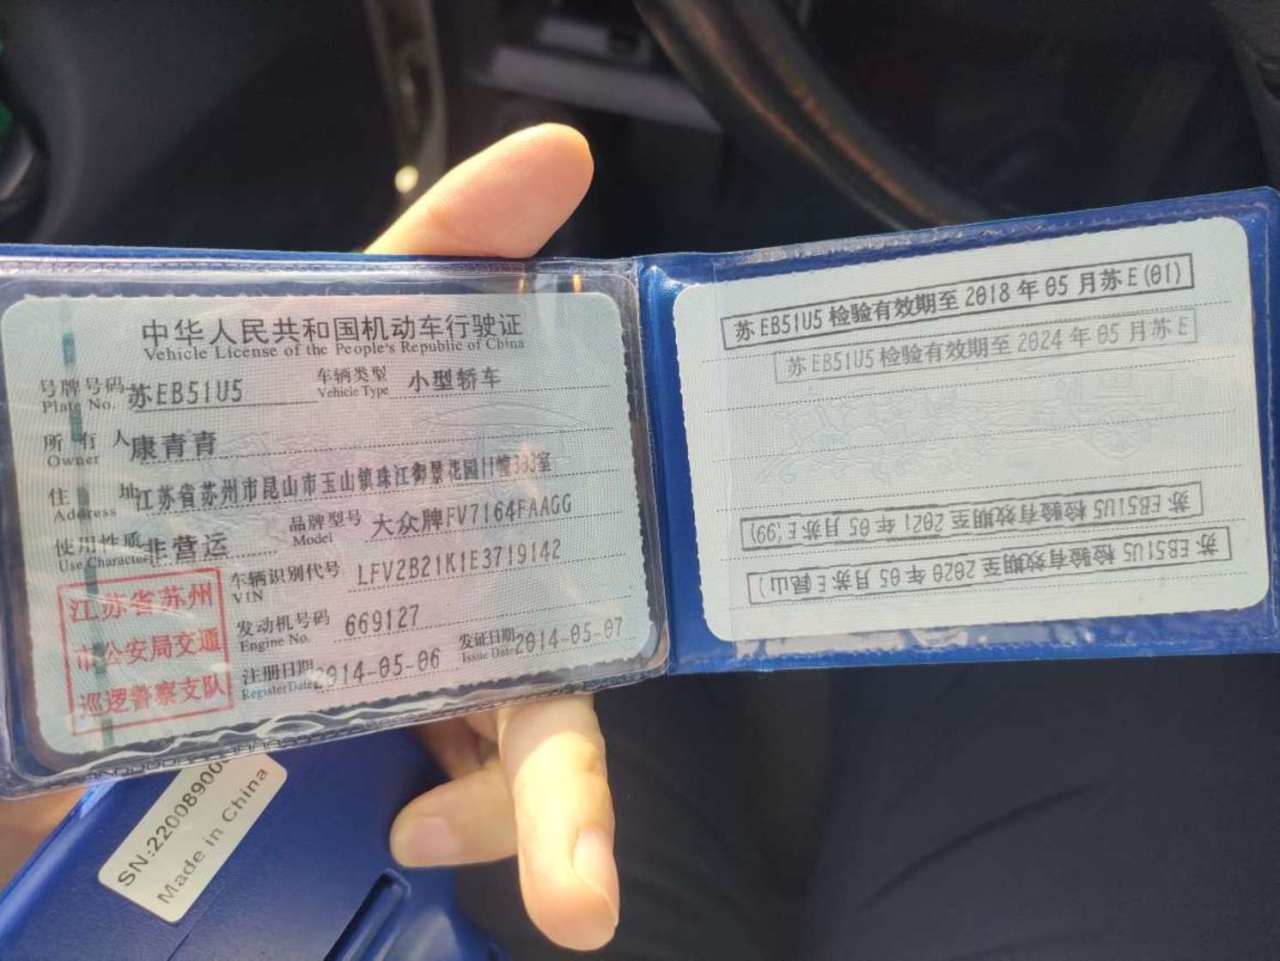 中华人民共和国机动车行驶证
Vehicle License of the People's Republic of China
号牌号码 苏EB51U5 车辆类型 小型轿车
Plate No. Vehicle Type
所有人 康青青
Owner
住址 江苏省苏州市昆山市玉山镇珠江御景花园11幢303室
Address
使用性质 非营运 品牌型号 大众牌FV7164FAAGG
Use Character Model
车辆识别代号 LFV2B21K1E3719142
VIN
发动机号码 669127
Engine No.
注册日期 2014-05-06 发证日期 2014-05-07
Register Date Issue Date
江苏省苏州
市公安局交通
巡逻警察支队
苏EB51U5检验有效期至2018年05月苏E(01)
苏EB51U5检验有效期至2024年05月苏E
苏EB51U5检验有效期至2021年05月苏E(99)
苏EB51U5检验有效期至2020年05月苏E(昆山)
SN:22008900
Made in China